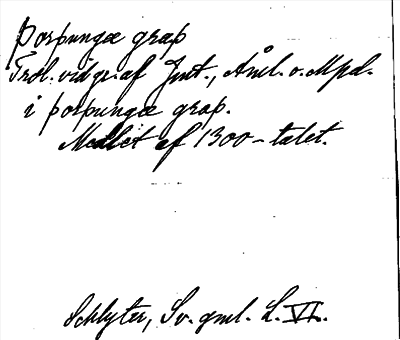 Þorpungæ grap
Trol. vidgr. af Jmt., Ånl. o. Mpd.
i þorpungæ grap.
Medlet af 1300-talet.
Schlyter, Sv. gml. L. VI.